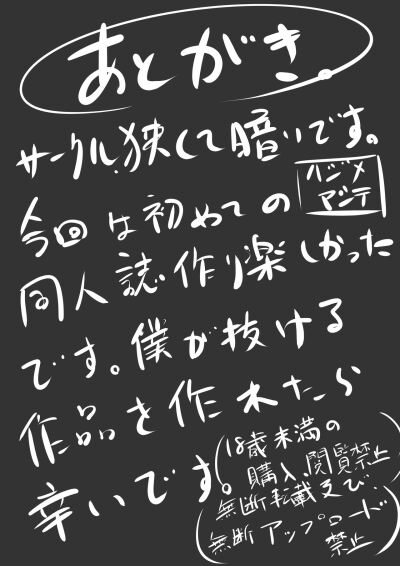 あとがき。
サークル、狭くて暗いです。
今回は初めての
ハジメ
マシテ
同人誌作り楽しかった
です。僕が抜ける
作品を作れたら
幸いです。
(18歳未満の
購入、閲覧禁止)
(無断転載及び
無断アップロード
禁止)